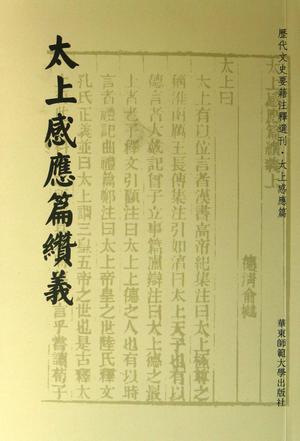 歷代文史要籍注釋選刊·太上感應篇
華東師範大學出版社
太上感應篇纘義
德清俞樾
太上曰
太上有以位言者漢書高帝紀集注曰太上極尊之
稱淮南厲王長傳集注引如淳曰太上天子也有以
德言者大戴記曾子立事篇盧辯注曰太上德之最
上者老子釋文引顧注曰太上上德之人也有以時
言者禮記曲禮篇鄭注曰太上帝皇之世陸氏釋文
孔氏正義並曰太上謂三皇五帝之世也是古釋太
言乎嘗讀荀子